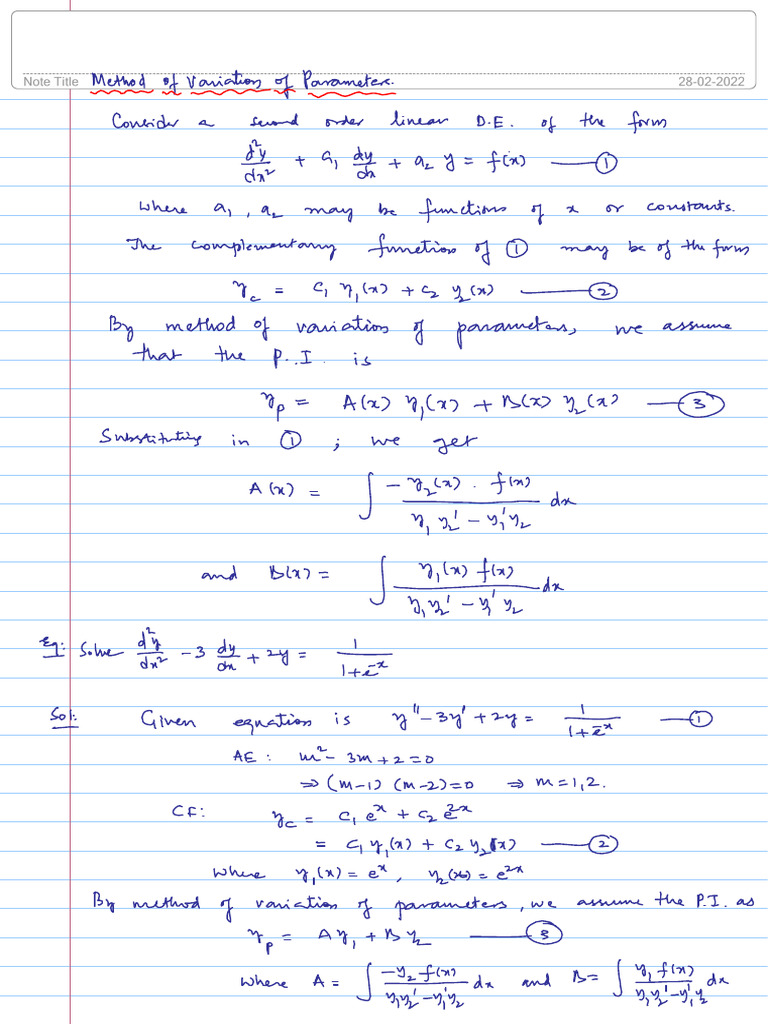 Note Title Method of Variation of Parameters. 28-02-2022
Consider a second order linear D.E. of the form
d²y/dx² + a₁ dy/dx + a₂ y = f(x) —— ①
where a₁, a₂ may be functions of x or constants.
The complementary function of ① may be of the form
y_c = c₁ y₁(x) + c₂ y₂(x) —— ②
By method of variation of parameters, we assume
that the P.I. is
y_p = A(x) y₁(x) + B(x) y₂(x) —— ③
Substituting in ① ; we get
A(x) = ∫ (-y₂(x) . f(x))/(y₁ y₂' - y₁' y₂) dx
and B(x) = ∫ (y₁(x) f(x))/(y₁ y₂' - y₁' y₂) dx
Eg: Solve d²y/dx² - 3 dy/dx + 2y = 1/(1+e⁻ˣ)
Sol: Given equation is y'' - 3y' + 2y = 1/(1+e⁻ˣ) —— ①
AE: m² - 3m + 2 = 0
⇒ (m-1) (m-2) = 0 ⇒ m = 1, 2.
CF: y_c = c₁ eˣ + c₂ e²ˣ
= c₁ y₁(x) + c₂ y₂(x) —— ②
where y₁(x) = eˣ, y₂(x) = e²ˣ
By method of variation of parameters, we assume the P.I. as
y_p = A y₁ + B y₂ —— ③
where A = ∫ (-y₂ f(x))/(y₁y₂' - y₁'y₂) dx and B = ∫ (y₁ f(x))/(y₁y₂' - y₁'y₂) dx